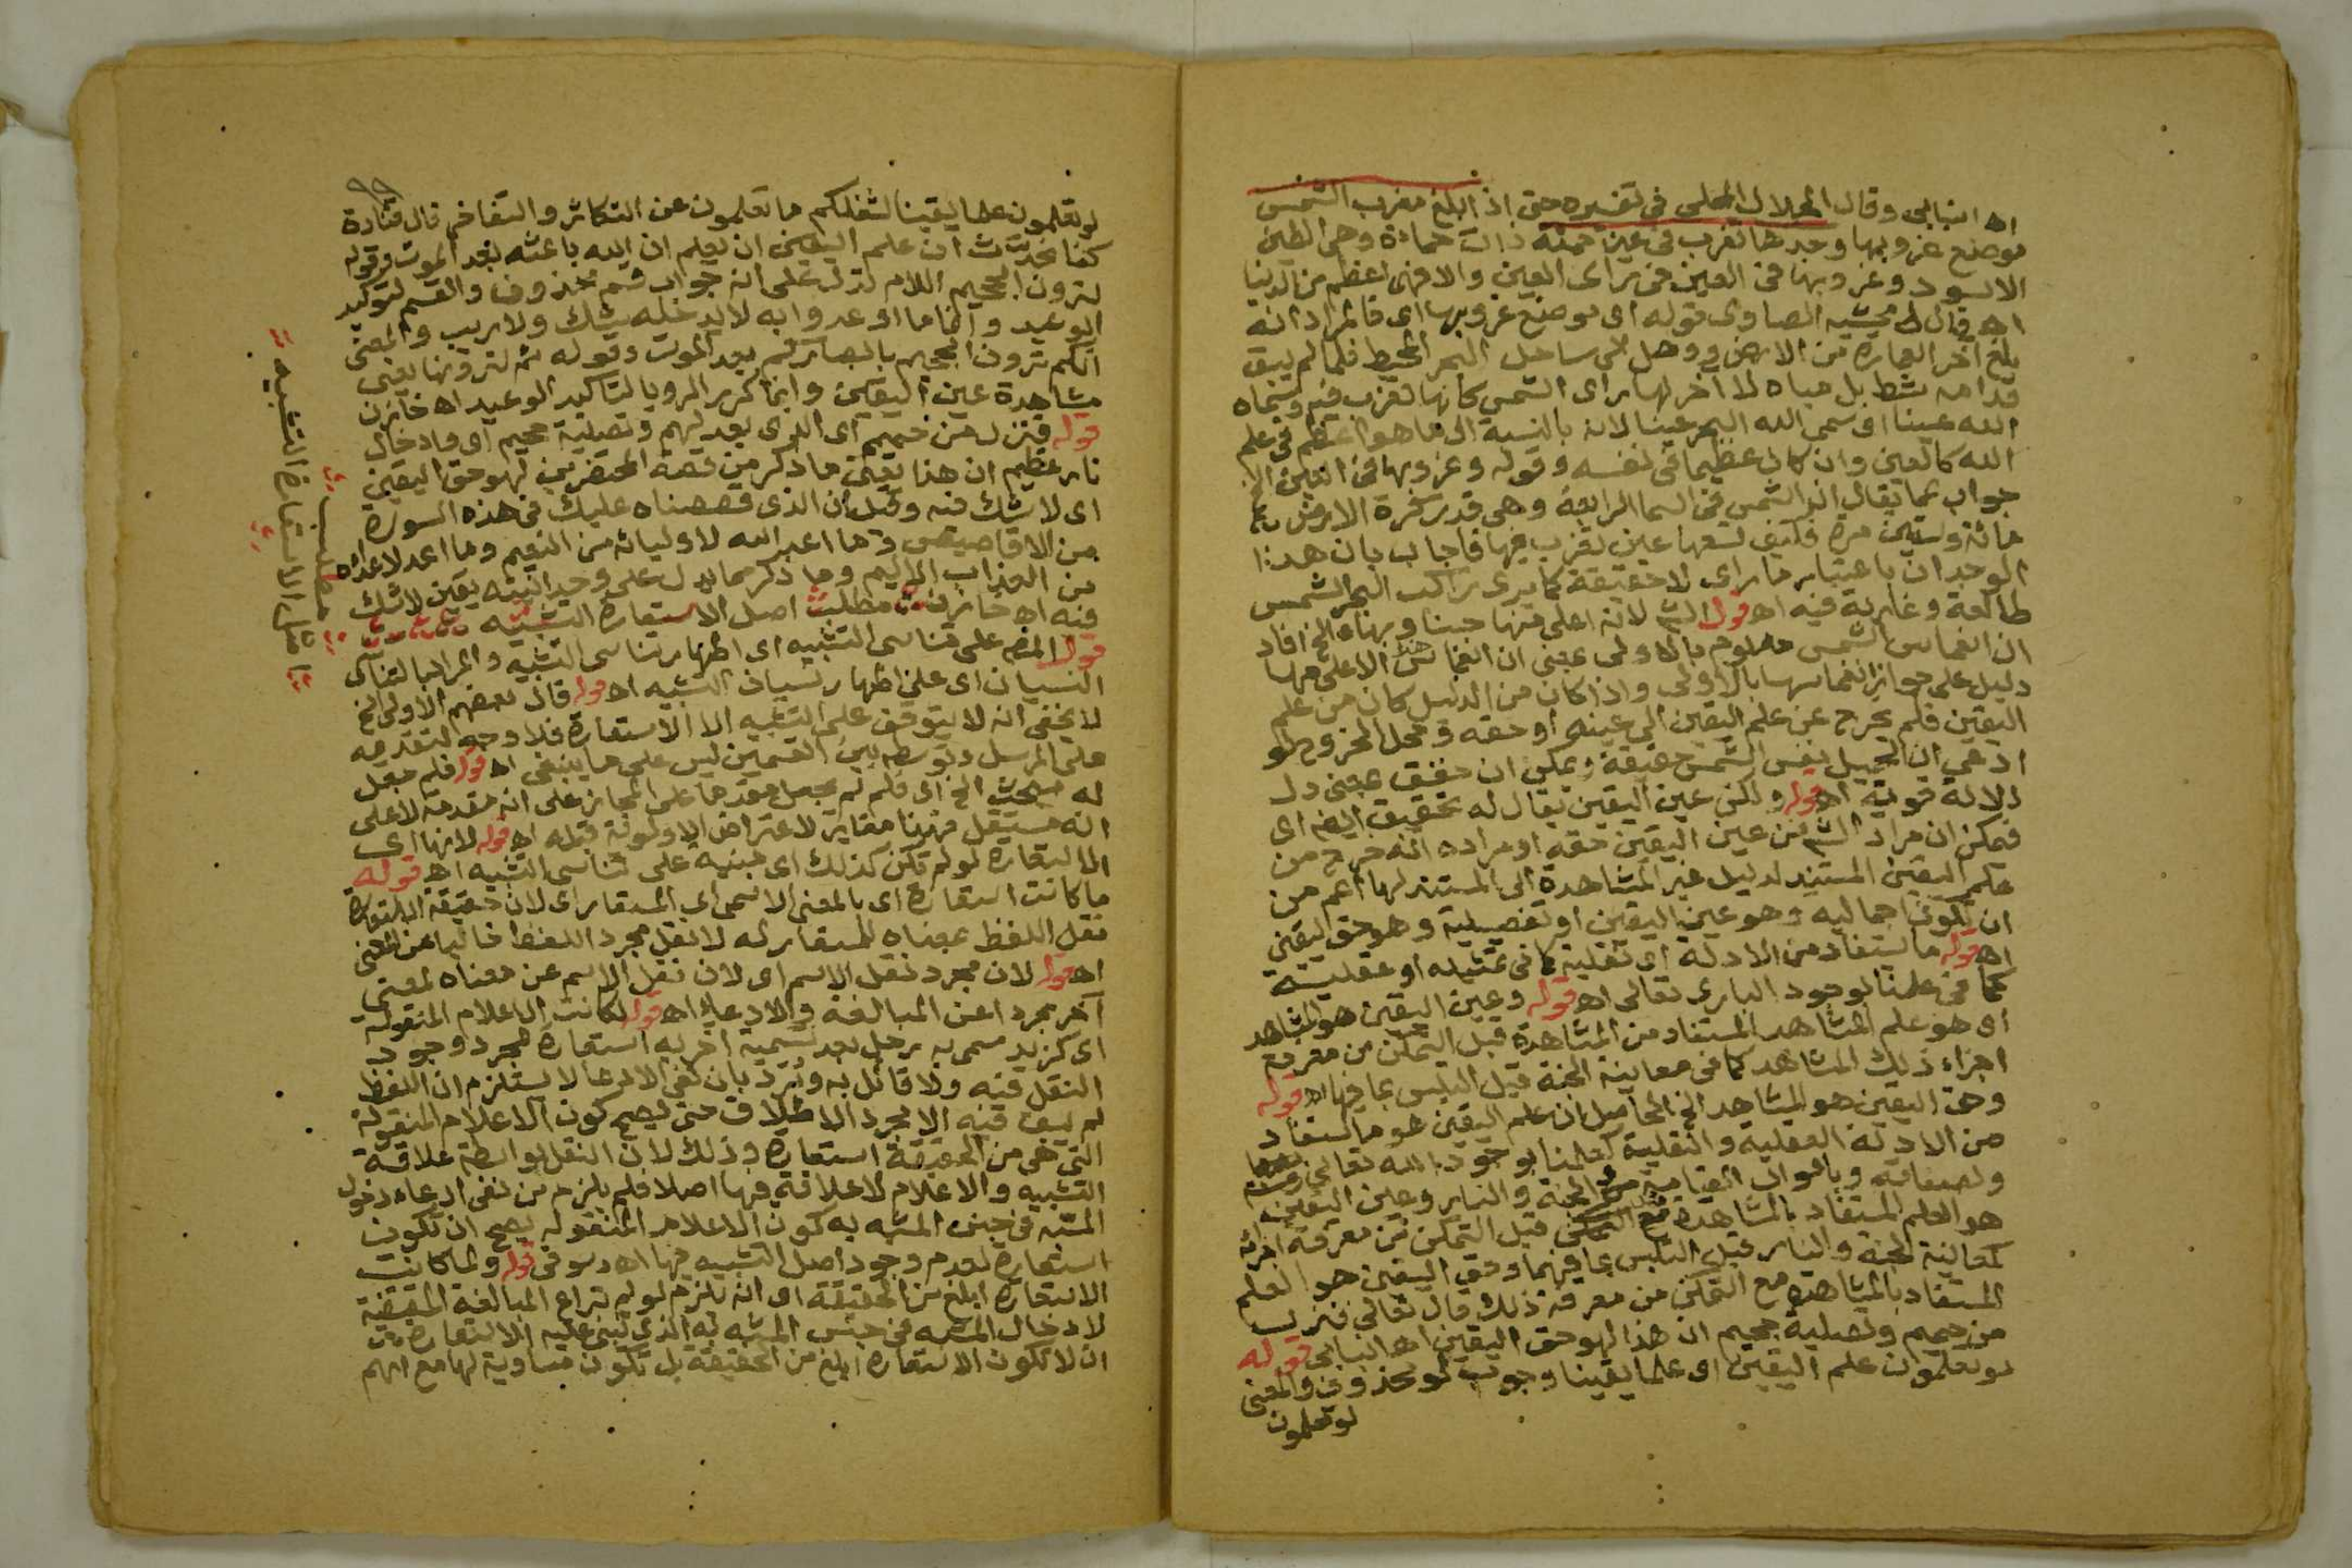 اه انبابي وقال الجلال المحلي في تفسيره حتى اذا بلغ مغرب الشمس
موضع غروبها وجدها تغرب في عين حمئة ذات حماءة وهي الطين
الاسود وغروبها في العين في راى العين والا فهي اعظم من الدنيا
اه قال محشيه الصاوى قوله اى موضع غروبها اى فالمراد انه
بلغ آخر العمارة من الارض ووصل الى ساحل البحر المحيط فلما لم يبق
قدامه شط بل مياه لا آخر لها راى الشمس كانها تغرب فيه وسماه
الله عينا اى سمى الله البحر عينا لانه بالنسبة الى ما هو اعظم في علم
الله كالعين وان كان عظيما في نفسه وقوله وغروبها في العين الخ
جواب عما يقال ان الشمس في السما الرابعة وهي قدر كرة الارض
مائة وستين مرة فكيف تسعها عين تغرب فيها فاجاب بان هذا
الوجدان باعتبار ما راى لا حقيقة كما يرى راكب البحر الشمس
طالعة وغاربة فيه اه قوله الشم لانه اعلى منها حسنا وبهاء الخ افاد
ان انغماس الشمس معلوم بالاولى بمعنى ان انغماس الاعلى منها
دليل على جواز انغماسها بالاولى واذا كان من الدليل كان من علم
اليقين فلم يخرج عن علم اليقين الى عينه او حقه ومحل الخروج لو
ادعى ان الجميل نفس الشمس حقيقة ويمكن ان حقق بمعنى دل
دلالة قوية اه قوله ولكن عين اليقين يقال له تحقيق ايضا اى
فيمكن ان مراد الشم من عين اليقين حقه او مراده انه خرج من
علم اليقين المستند لدليل غير المشاهدة الى المستند لها اعم من
ان تكون اجماليه وهو عين اليقين او تفصيلية وهو حق اليقين
اه قوله ما استفاد من الادلة اى نقلية كما في تمثيله او عقلية
كما في علمنا بوجود البارى تعالى اه قوله وعين اليقين هو المشاهد
اى هو علم المشاهد المستفاد من المشاهدة قبل التمكن من معرفة
اجزاء ذلك المشاهد كما في معاينة الجنة قبل التلبس بما فيها اه قوله
وحق اليقين هو المشاهد الخ الحاصل ان علم اليقين هو ما استفاد
من الادلة العقلية والنقلية كعلمنا بوجود الله تعالى
وبصفاته وباهوال القيامة من الجنة والنار وعين اليقين
هو العلم المستفاد بالمشاهدة قبل التمكن من معرفة اجزائه
كمعاينة الجنة والنار قبل التلبس بما فيهما وحق اليقين هو العلم
المستفاد بالمشاهدة مع التمكن من معرفة ذلك قال تعالى فنزل
من حميم وتصلية جحيم ان هذا لهو حق اليقين اه انبابي قوله
لو تعلمون علم اليقين اى علما يقينا وجواب لو محذوف والمعنى
لو تعلمون
لو تعلمون علما يقينا لشغلكم ما تعلمون عن التكاثر والتفاخر قال قتادة
كنا نحدث ان علم اليقين ان يعلم ان الله باعثه بعد الموت وقوله
لترون الجحيم اللام تدل على انه جواب قسم محذوف والقسم لتوكيد
الوعيد وان ما اوعدوا به لا يدخله شك ولا ريب والمعنى
انكم ترون الجحيم بابصاركم بعد الموت وقوله ثم لترونها يعنى
مشاهدة عين اليقين وانما كرر الرويا لتاكيد الوعيد اه خازن
قوله فنزل من حميم اى الذى يعد لهم وتصلية جحيم اى وادخال
نار عظيم ان هذا يعنى ما ذكر من قصة المحتضرين لهو حق اليقين
اى لا شك فيه وقيل ان الذى قصصناه عليك في هذه السورة
من الاقاصيص وما اعد الله لاوليائه من النعيم وما اعد لاعدائه
من العذاب الاليم وما ذكر مما يدل على وحدانيته يقين لا شك
فيه اه خازن مطلب اصل الاستعارة التشبيه
قوله المص على تناسى التشبيه اى اظهار تناسى التشبيه والمراد بالتناسى
النسيان اى على اظهار نسيان التشبيه اه قوله قال بعضهم الاولى الخ
لا يخفى انه لا يتوقف على التشبيه الا الاستعارة فلا وجه لتقديمه
على المرسل وتوسطه بين القسمين ليس على ما ينبغي اه قوله فلم يجعل
له مبحث الخ اى فلم لم يجعل مقدما على المجاز على انه مقدمة لا على
انه مستقل فهذا مغاير لاعتراض الاولوية قبله اه قوله لانها اى
الاستعارة لو لم تكن كذلك اى مبنية على تناسى التشبيه اه قوله
ما كانت استعارة اى بالمعنى الاسمى اى المستعار اى لان حقيقة الاستعارة
نقل اللفظ بمعناه للمستعار له لا نقل مجرد اللفظ خاليا عن المعنى
اه قوله لان مجرد نقل الاسم اى لان نقل الاسم عن معناه لمعنى
آخر مجردا عن المبالغة والادعاء اه قوله لكانت الاعلام المنقولة
اى كزيد مسمى به رجل بعد تسمية آخر به استعارة لمجرد وجود
النقل فيه ولا قائل به ورد بان نفى الادعا لا يستلزم ان اللفظ
لم يبق فيه الا مجرد الاطلاق حتى يصح كون الاعلام المنقولة
التى هى من الحقيقة استعارة وذلك لان النقل بواسطة علاقة
التشبيه والاعلام لا علاقة فيها اصلا فلم يلزم من نفى ادعاء دخول
المشبه في جنس المشبه به كون الاعلام المنقولة يصح ان تكون
استعارة لعدم وجود اصل التشبيه فيها اه دسوقى قوله ولما كانت
الاستعارة ابلغ من الحقيقة اى انه يلزم لو لم تراع المبالغة المقتضية
لادخال المشبه في جنس المشبه به الذى تبنى عليه الاستعارة من
ان لا تكون الاستعارة ابلغ من الحقيقة بل تكون مساوية لها مع انهم
مطلب
اصل الاستعارة التشبيه